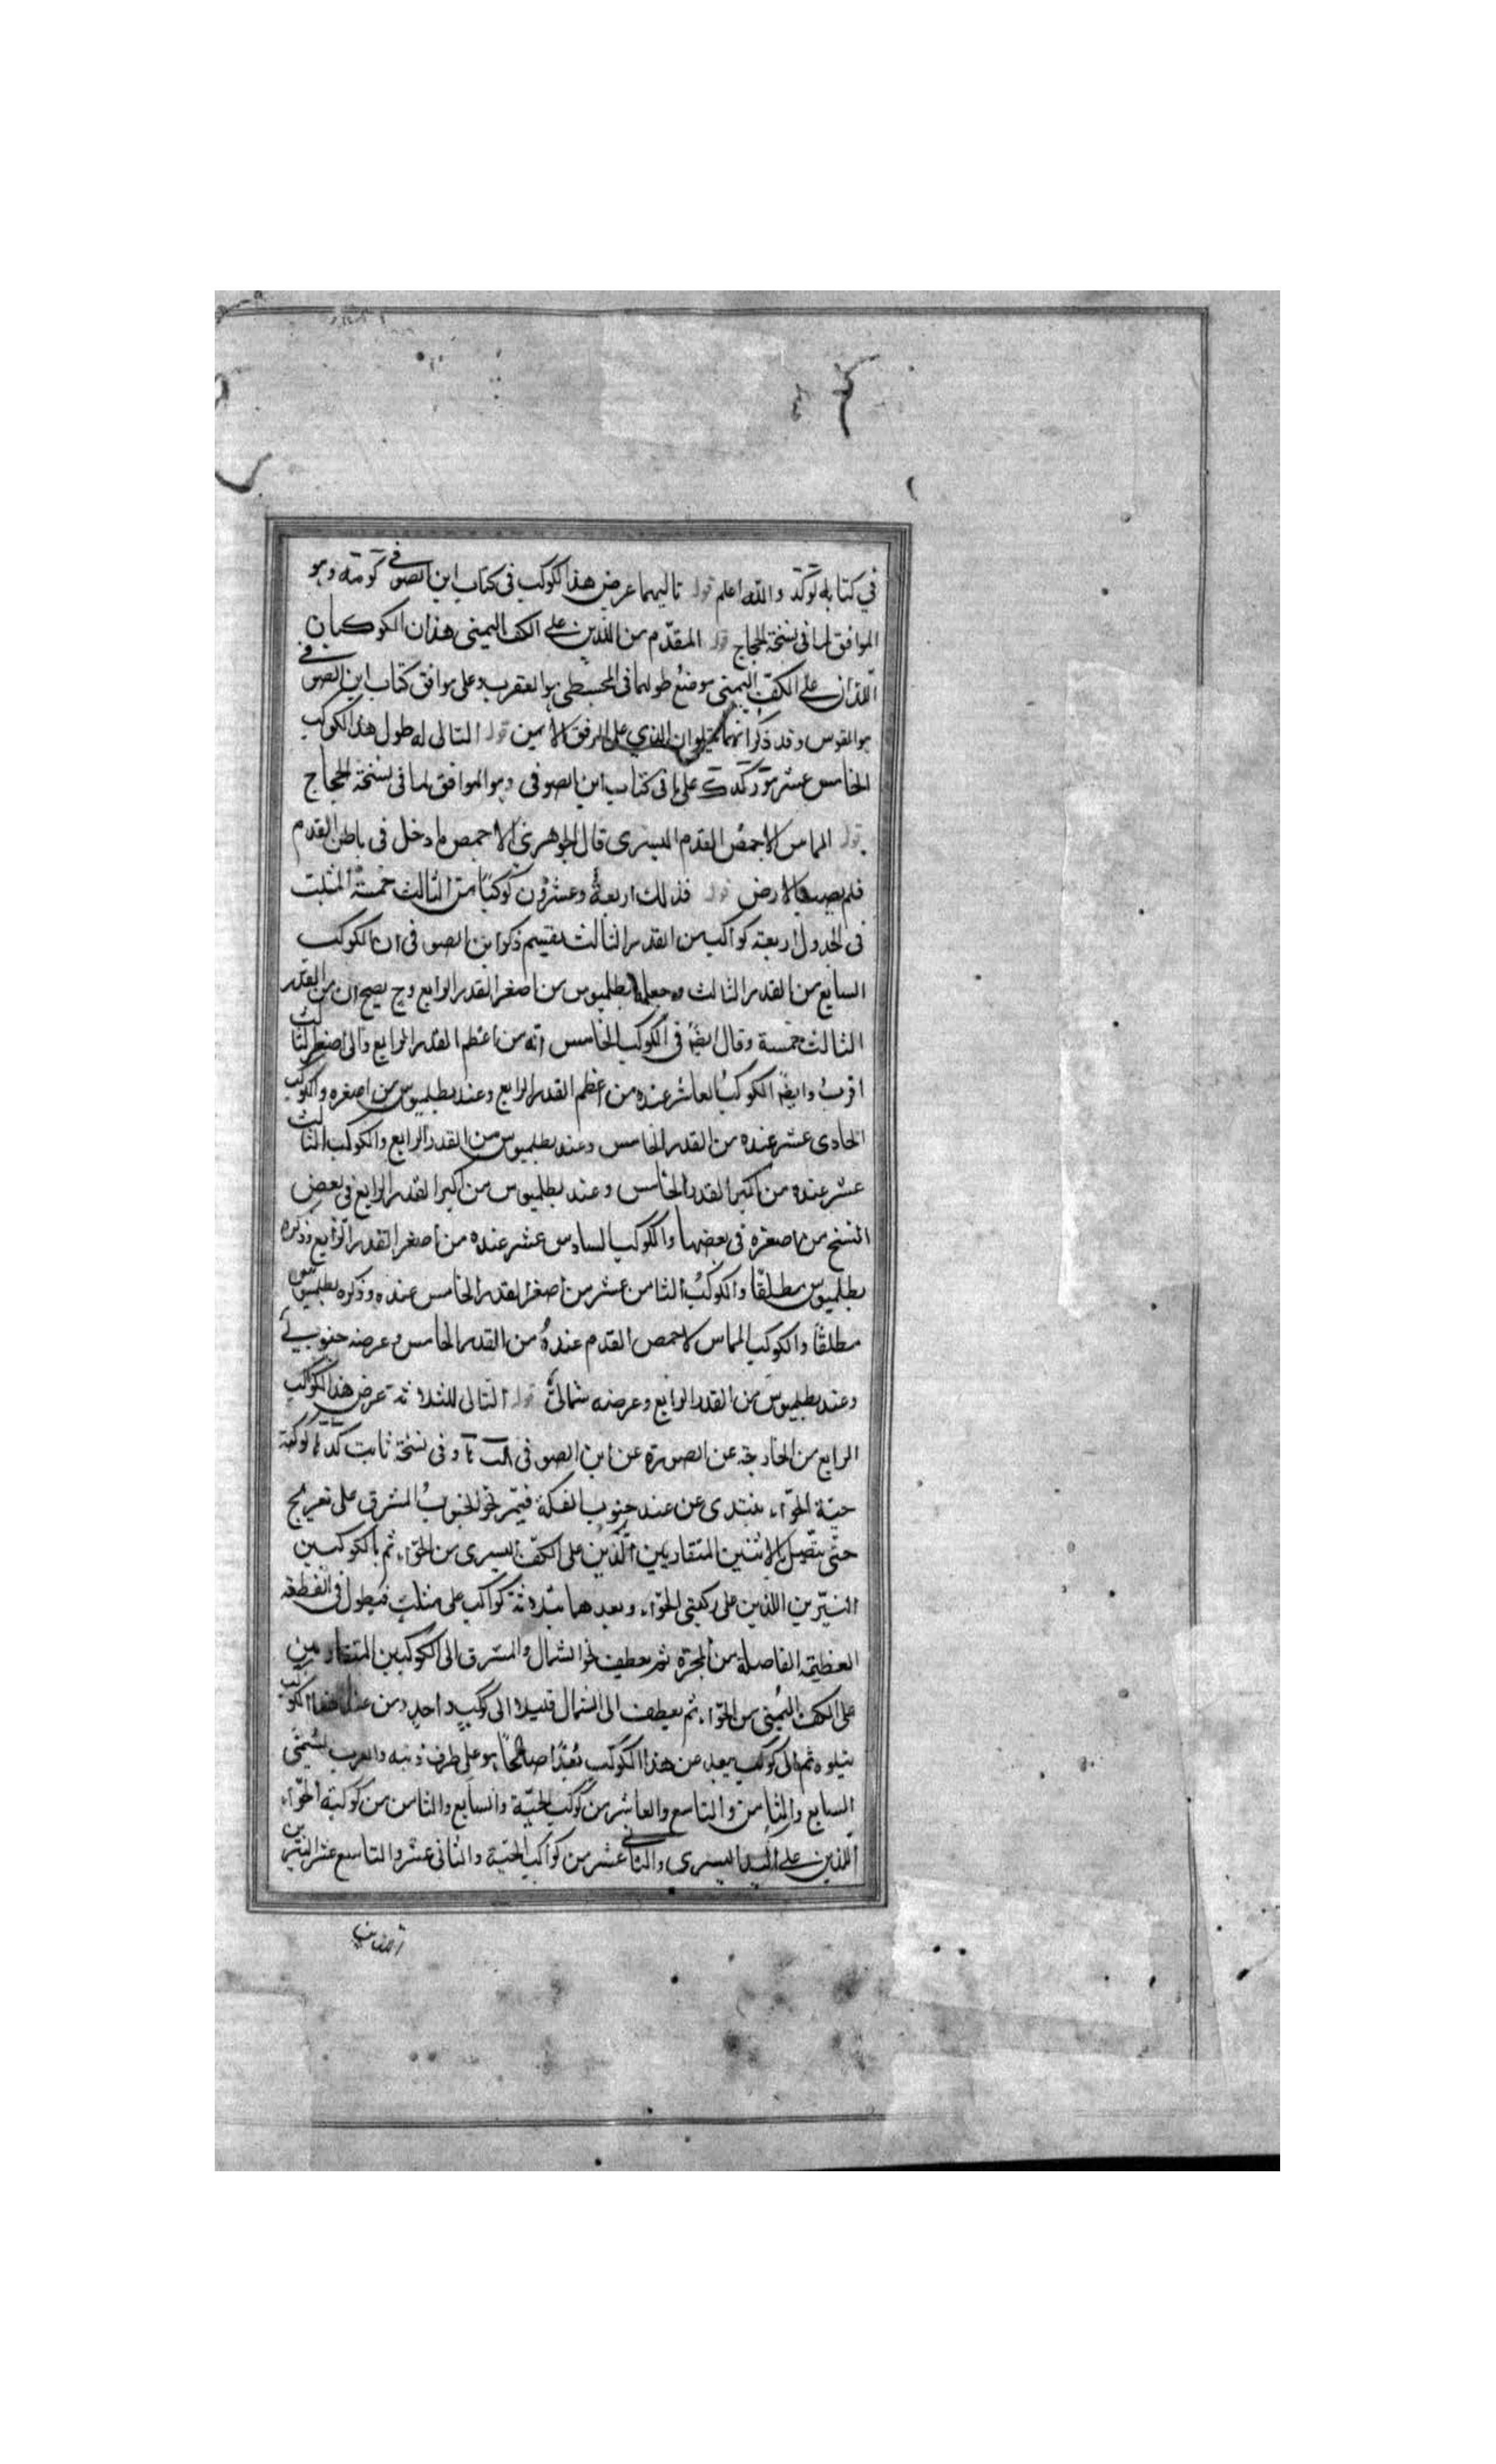 في كتابه توكد والله اعلم قوله تاليهما عرض هذا الكوكب في كتاب ابن الصوفي كومته وهو
الموافق لما في نسخة الحجاج قوله المقدّم من اللذين على الكف اليمنى هذان الكوكبان
اللذان على الكفّ اليمنى موضع طولهما في المجسطي هو العقرب وعلى موافق كتاب ابن الصوفي
هو القوس وقد ذكر انهما الذي على المرفق الايمن قوله التالي له طول هذا الكوكب
الخامس عشر على ما في كتاب ابن الصوفي وهو الموافق لما في نسخة الحجاج
قوله المماس لاخمص القدم اليسرى قال الجوهري الاخمص ما دخل في باطن القدم
فلم يصب الارض قوله فذلك اربعةٌ وعشرون كوكبًا من الثالث خمسة المثبت
في الجدول اربعة كواكب من القدر الثالث ذكر ابن الصوفي ان الكوكب
السابع من القدر الثالث وجعله بطلميوس من اصغر القدر الرابع وح يصح ان من القدر
الثالث خمسة وقال ايضًا في الكوكب الخامس انه من اعظم القدر الرابع والى اصغر الثالث
اقرب وايضًا الكوكب العاشر عنده من اعظم القدر الرابع وعند بطلميوس من اصغره والكوكب
الحادى عشر عنده من القدر الخامس وعند بطلميوس من القدر الرابع والكوكب الثالث
عشر عنده من اكبر القدر الخامس وعند بطلميوس من اكبر القدر الرابع في بعض
النسخ من اصغره في بعضها والكوكب السادس عشر عنده من اصغر القدر الرابع وذكره
بطلميوس مطلقًا والكوكب الثامن عشر من اصغر القدر الخامس عنده وذكره بطلميوس
مطلقًا والكوكب المماس لاخمص القدم عنده من القدر الخامس وعرضه جنوبي
وعند بطلميوس من القدر الرابع وعرضه شمالي قوله التالي للثلاثة عرض هذا الكوكب
الرابع من الخارجة عن الصورة عن ابن الصوفي وفي نسخة ثابت
حيّة الحوّاء يبتدى عن عند جنوب الفكة فيمرّ نحو الجنوب المشرق على تعريج
حتّى يتّصل بالاثنين المتقاربين الّذين على الكفّ اليسرى من الحوّاء ثم بالكوكبين
النيّرين اللذين على ركبتي الحوّاء وبعدهما بثلاثة كواكب على مثلث فيطول في القطعة
العظيمة الفاصلة من المجرّة ثم يعطف نحو الشمال والمشرق الى الكوكبين المتقاربين
على الكف اليمنى من الحوّاء ثم يعطف الى الشمال قليلا الى كوكب واحد ومن عند هذا الكوكب
يتلوه ثم الى كوكب يبعد عن هذا الكوكب بعدًا صالحًا هو على طرف ذنبه والعرب يسمّى
السابع والثامن والتاسع والعاشر من كوكب الحيّة والسابع والثامن من كوكبة الحوّاء
اللذين على اليد اليسرى والثاني عشر من كواكب الحيّة والثاني عشر والتاسع عشر النيّرين
اللذين